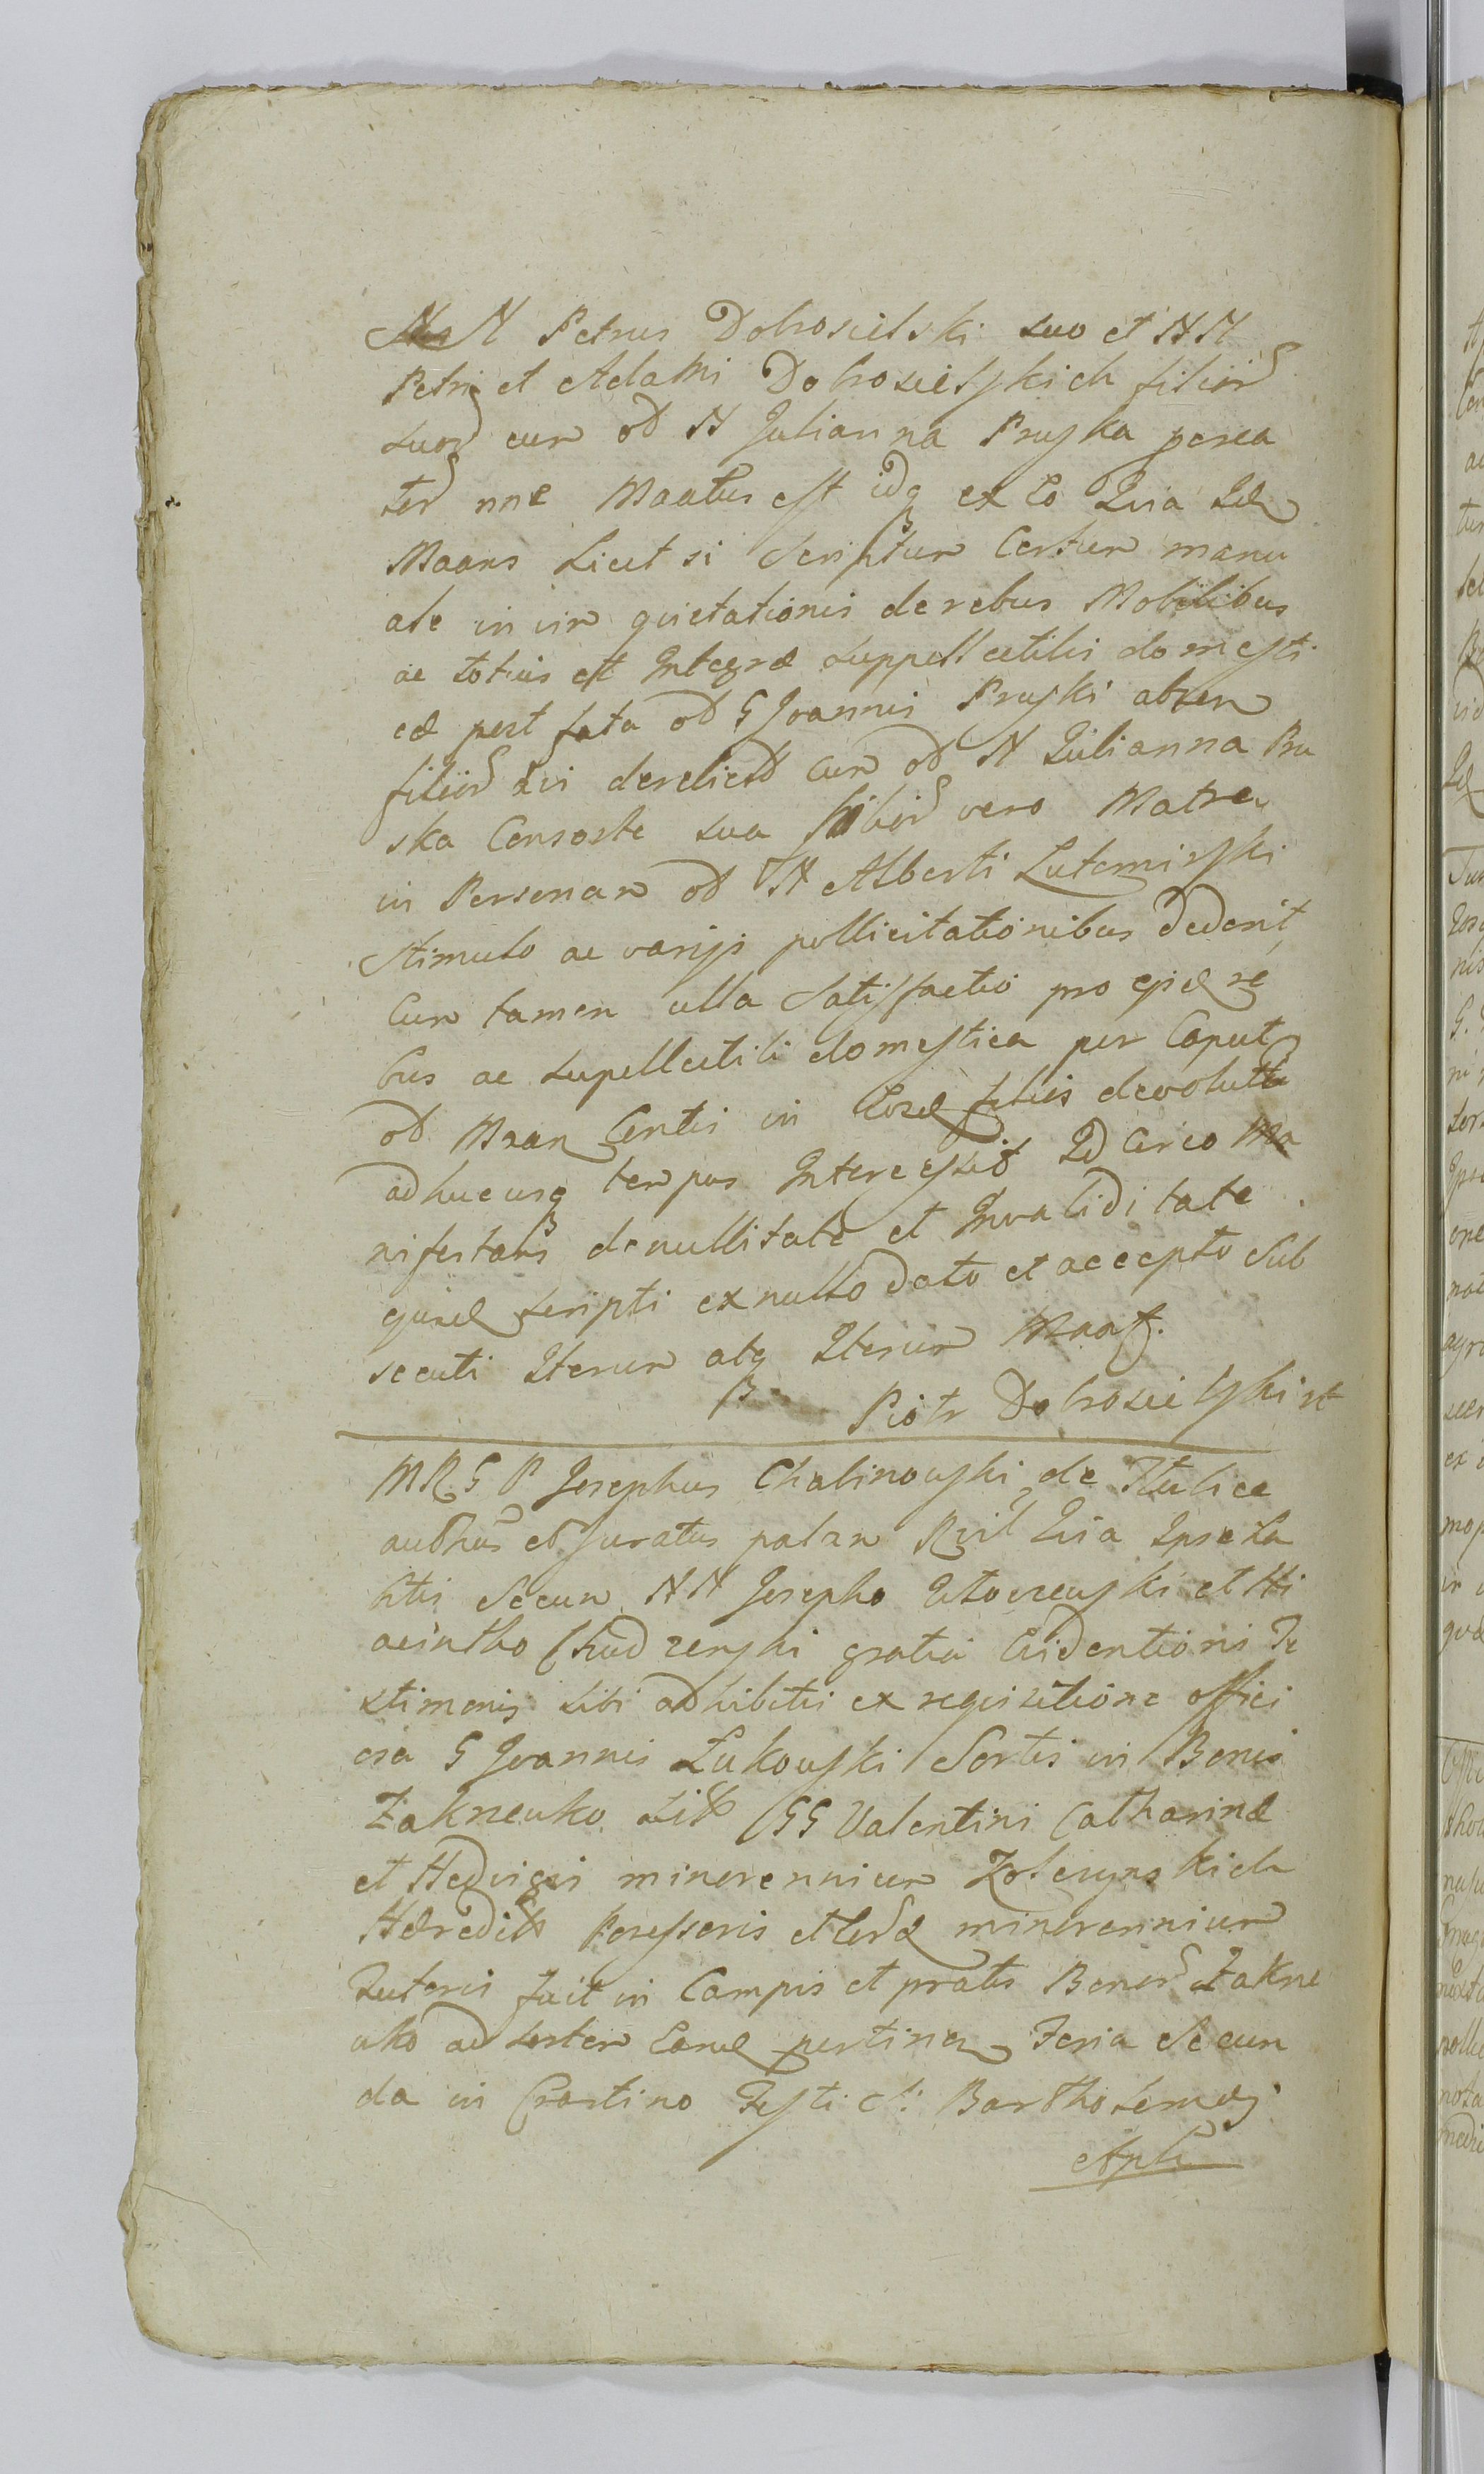 N Petrus Dobrosielski suo et NN
Petri et Adami Dobrosielskich filior
suor cum od N Julianna Pruska procrea
tor nne Maatus est idq ex eo Quia Id
Maans Licet si Scriptum Certum manu
ale in vim quietationis de rebus Mobilibus
ac totius et Integræ suppellectilis domesti
cæ post fata od G Joannis Pruski absen
filior sui derelict cum od N Julianna Pru
ska Consorte sua filior vero Matre
in Personam od N Alberti Lutomirski
stimulo ac varijs pollicitationibus dederit,
Cum tamen ulla Satisfactio pro ejsd re
bus ac supellectili domestica per Caput
od Maan Gentis in Eosd filios devoluta
adhucusq tempus Intercessit Idcirco Ma
nifestans de nullitate et Invaliditate
ejusd scripti ex nullo dato et accepto Sub
secuti Iterum atq Iterum Maat.
Piotr Dobrosielski
MRGP Josephus Chalinowski de Stulice
authus et Juratus palam Rvit Quia Ipse La
btis Secum NN Josepho et Hi
acintho Chudzenski gratia Evidentioris Te
stimonij sibi adhibitis ex requisitione offici
osa G Joannis Łukowski Sortis in Bonis
Zakrzewko sit GG Valentini Catharinæ
et Hedvigis minorennium
Hæredit Possessoris et Eord minorennium
Tutoris fuit in Campis et pratis Bonor Zakrze
wko ad sortem Eand pertinen Feria Secun
da in Crastino Festi S: Bartholomæj
Apli